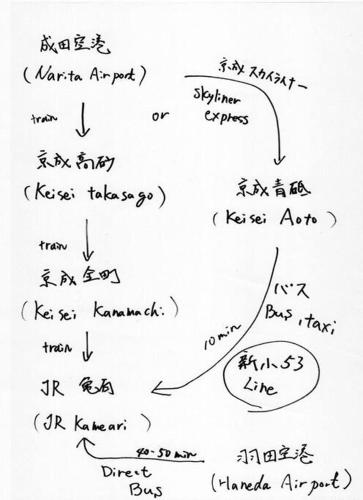 成田空港
(Narita Airport)
京成スカイライナー
Skyliner
express
train
or
京成高砂
(Keisei takasago)
京成青砥
(Keisei Aoto)
train
京成金町
(Keisei Kanamachi)
バス
Bus, taxi
10min
train
新小53
Line
JR 亀有
(JR Kameari)
40-50min
Direct
Bus
羽田空港
(Haneda Airport)